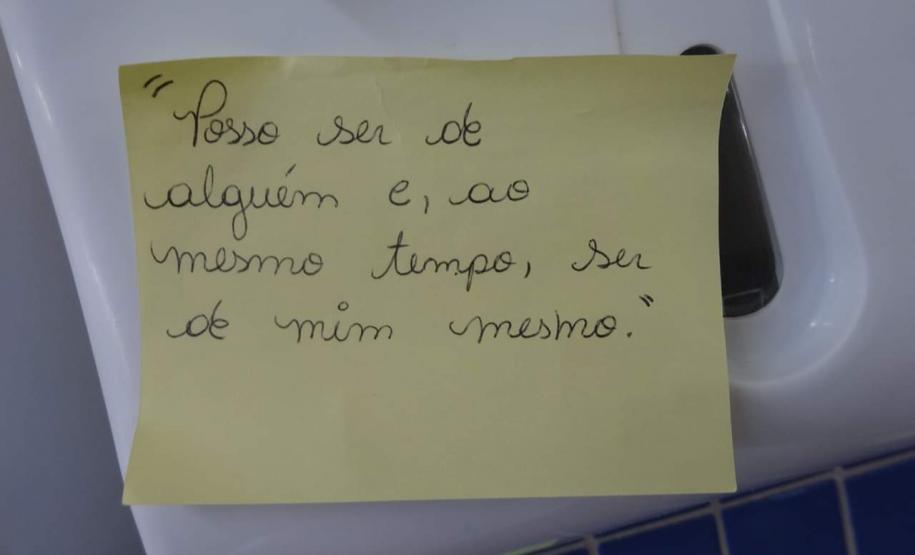 "Posso ser de
alguém e, ao
mesmo tempo, ser
de mim mesmo."